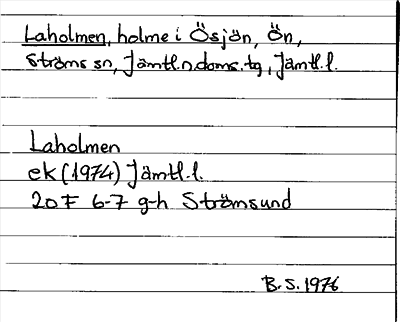 Laholmen, holme i Ösjön, Ön,
Ströms sn, Jämtl.n.doms.tg, Jämtl.l.
Laholmen
ek (1974) Jämtl.l.
20 F 6-7 g-h Strömsund
B.S. 1976